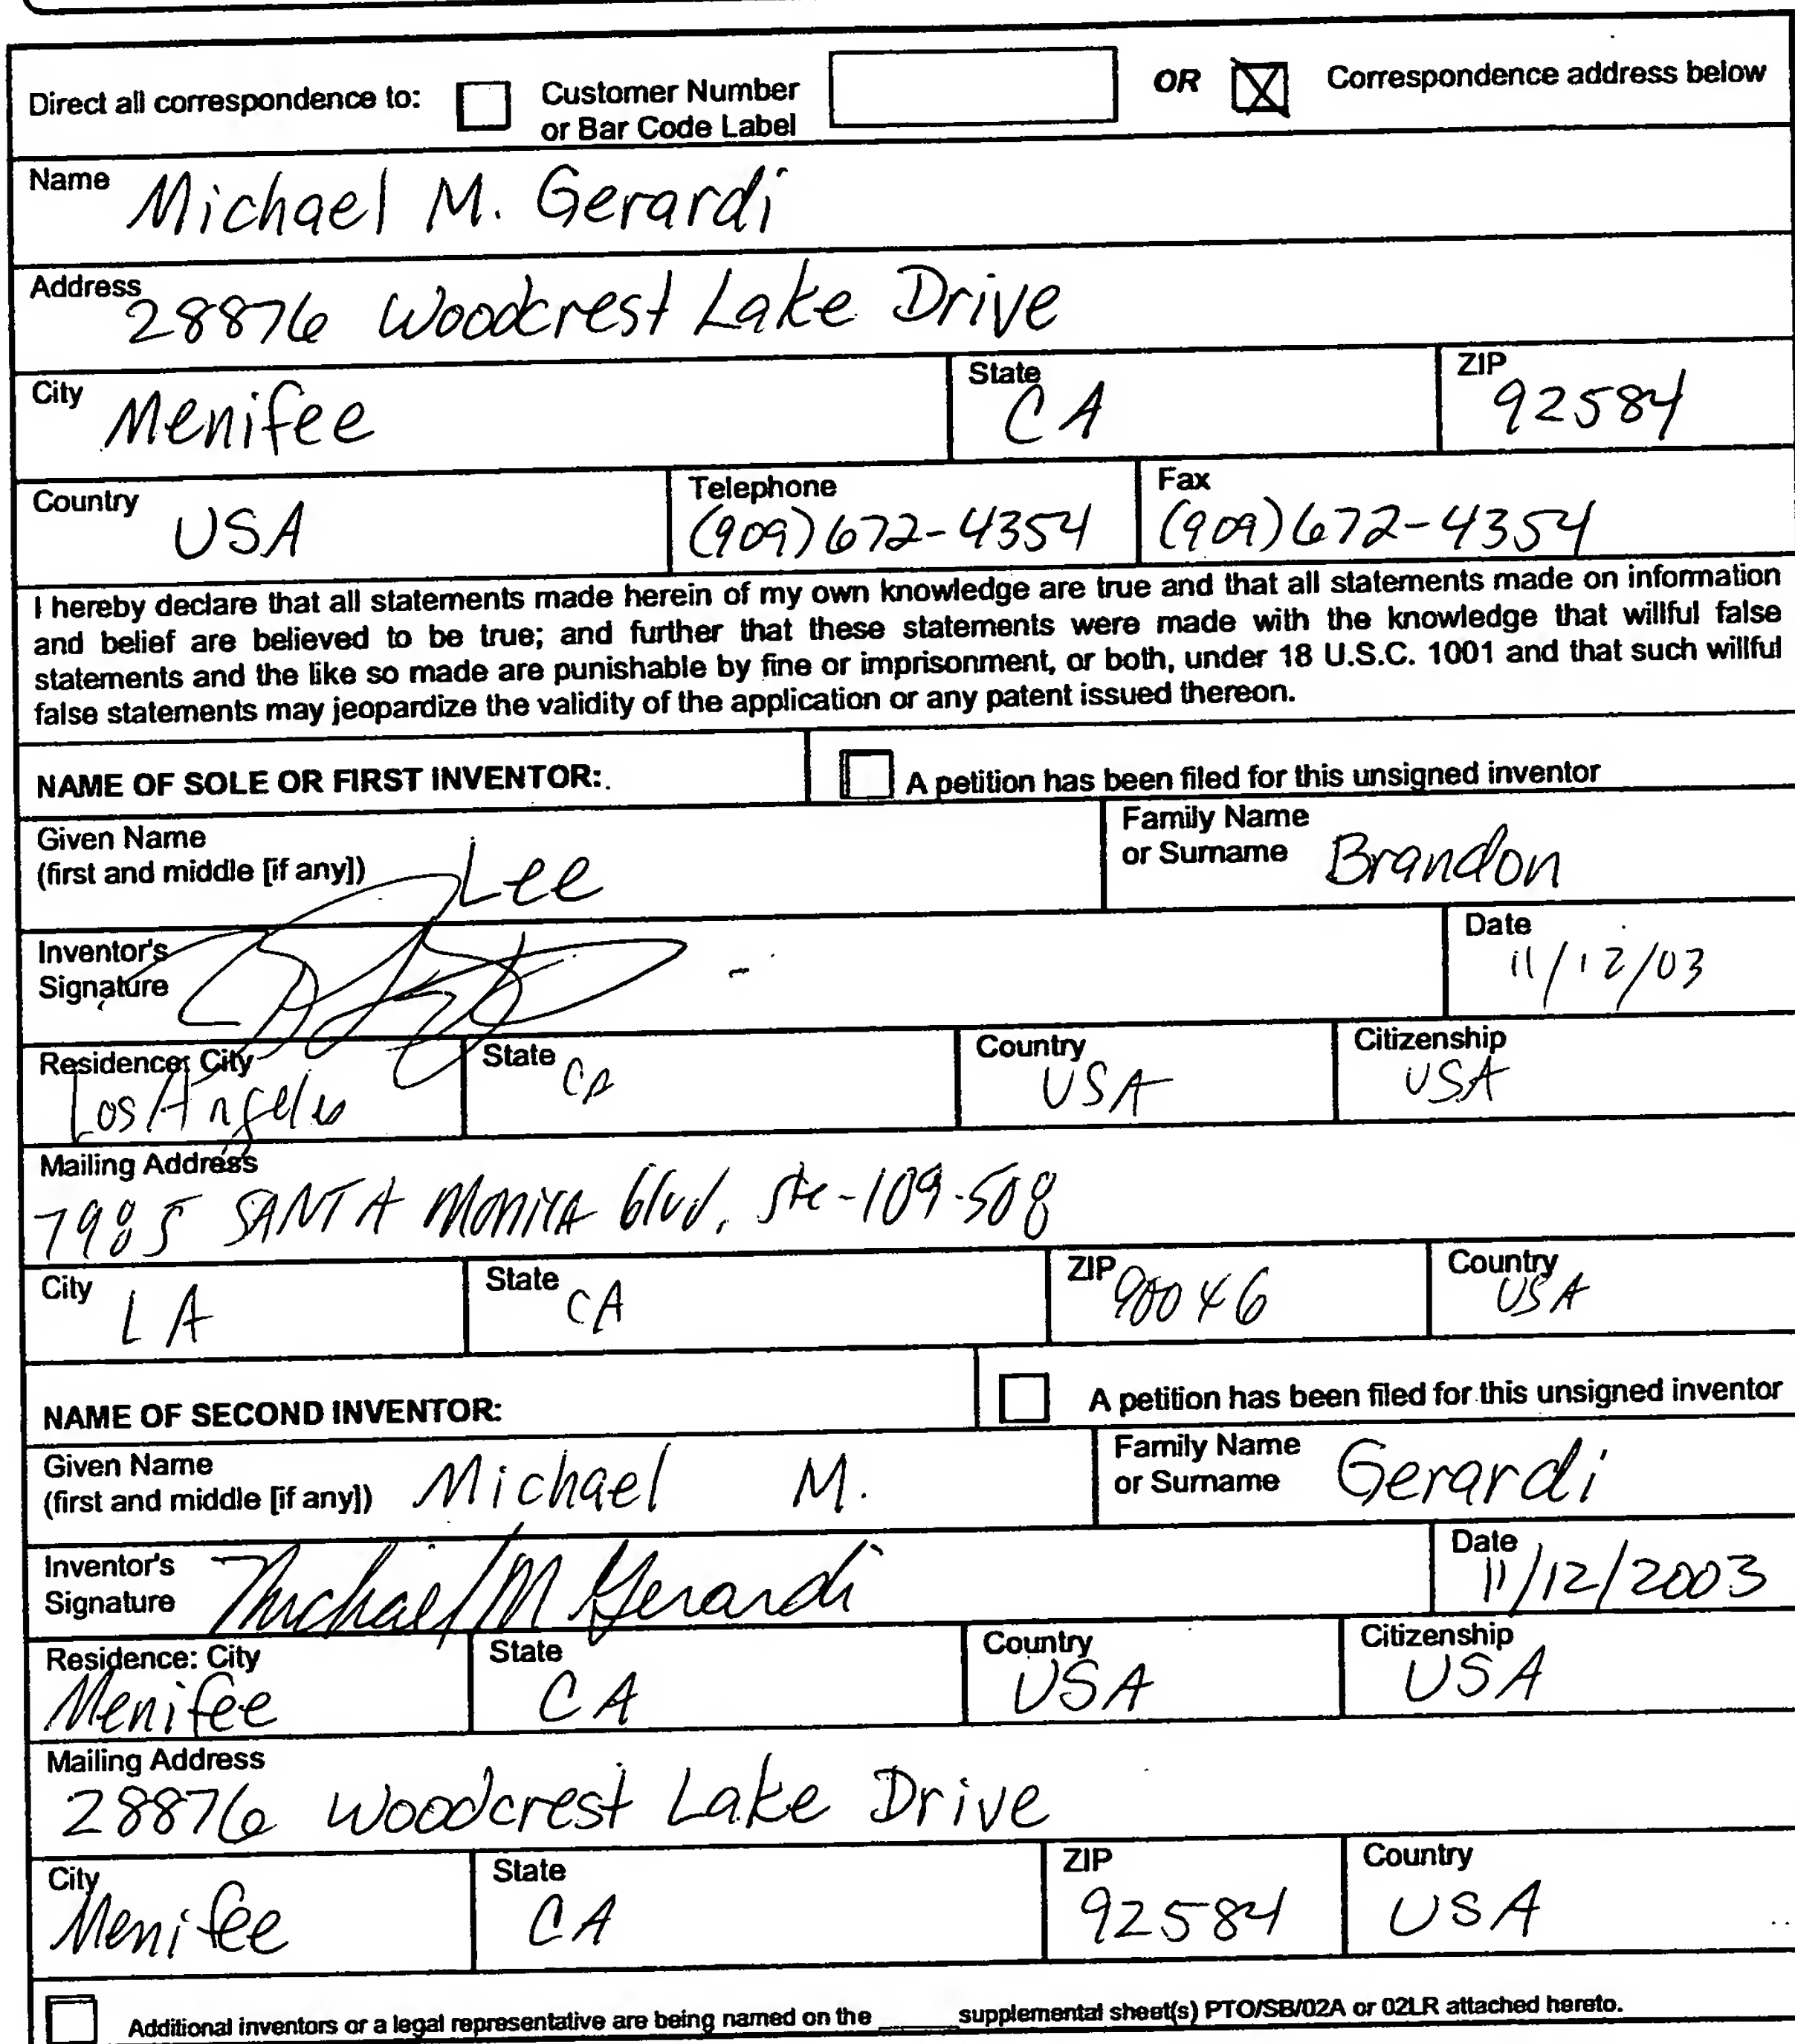 Direct all correspondence to: Customer Number or Bar Code Label OR Correspondence address below
Name Michael M. Gerardi
Address 28876 Woodcrest Lake Drive
City Menifee State CA ZIP 92584
Country USA Telephone (909)672-4354 Fax (909)672-4354
I hereby declare that all statements made herein of my own knowledge are true and that all statements made on information
and belief are believed to be true; and further that these statements were made with the knowledge that willful false
statements and the like so made are punishable by fine or imprisonment, or both, under 18 U.S.C. 1001 and that such willful
false statements may jeopardize the validity of the application or any patent issued thereon.
NAME OF SOLE OR FIRST INVENTOR: A petition has been filed for this unsigned inventor
Given Name (first and middle [if any]) Lee Family Name or Surname Brandon
Inventor's Signature Date 11/12/03
Residence: City Los Angeles State CA Country USA Citizenship USA
Mailing Address
7985 SANTA MONICA blvd. Ste-109-508
City LA State CA ZIP 90046 Country USA
NAME OF SECOND INVENTOR: A petition has been filed for this unsigned inventor
Given Name (first and middle [if any]) Michael M. Family Name or Surname Gerardi
Inventor's Signature Michael M Gerardi Date 11/12/2003
Residence: City Menifee State CA Country USA Citizenship USA
Mailing Address
28876 Woodcrest Lake Drive
City Menifee State CA ZIP 92584 Country USA
Additional inventors or a legal representative are being named on the ______ supplemental sheet(s) PTO/SB/02A or 02LR attached hereto.